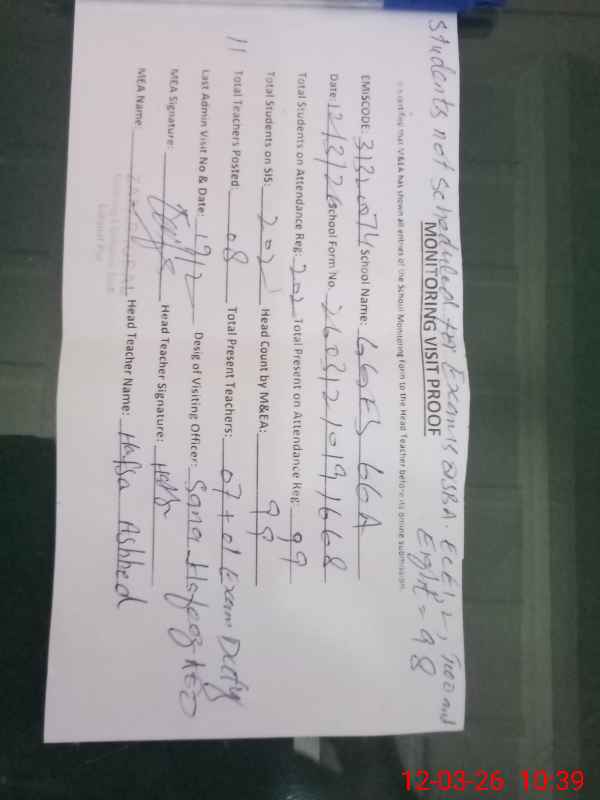 Students not scheduled for Exams @SBA. ECE 1, 2, Two and
Eight = 98
MONITORING VISIT PROOF
It is certified that M&EA has shown all entries of the School Monitoring Form to the Head Teacher before its online submission.
EMISCODE: School Name: GGES
Date 12/3/26 School Form No. 260312101911668
Total Students on Attendance Reg: 202 Total Present on Attendance Reg: 99
Total Students on SIS: 202 Head Count by M&EA: 99
11 Total Teachers Posted: 08 Total Present Teachers: 07 + 01 Exam Duty
Last Admin Visit No & Date: Desig of Visiting Officer: Sana Hafeez AEO
MEA Signature: Head Teacher Signature:
MEA Name Head Teacher Name: Hafsa
12-03-26 10:39